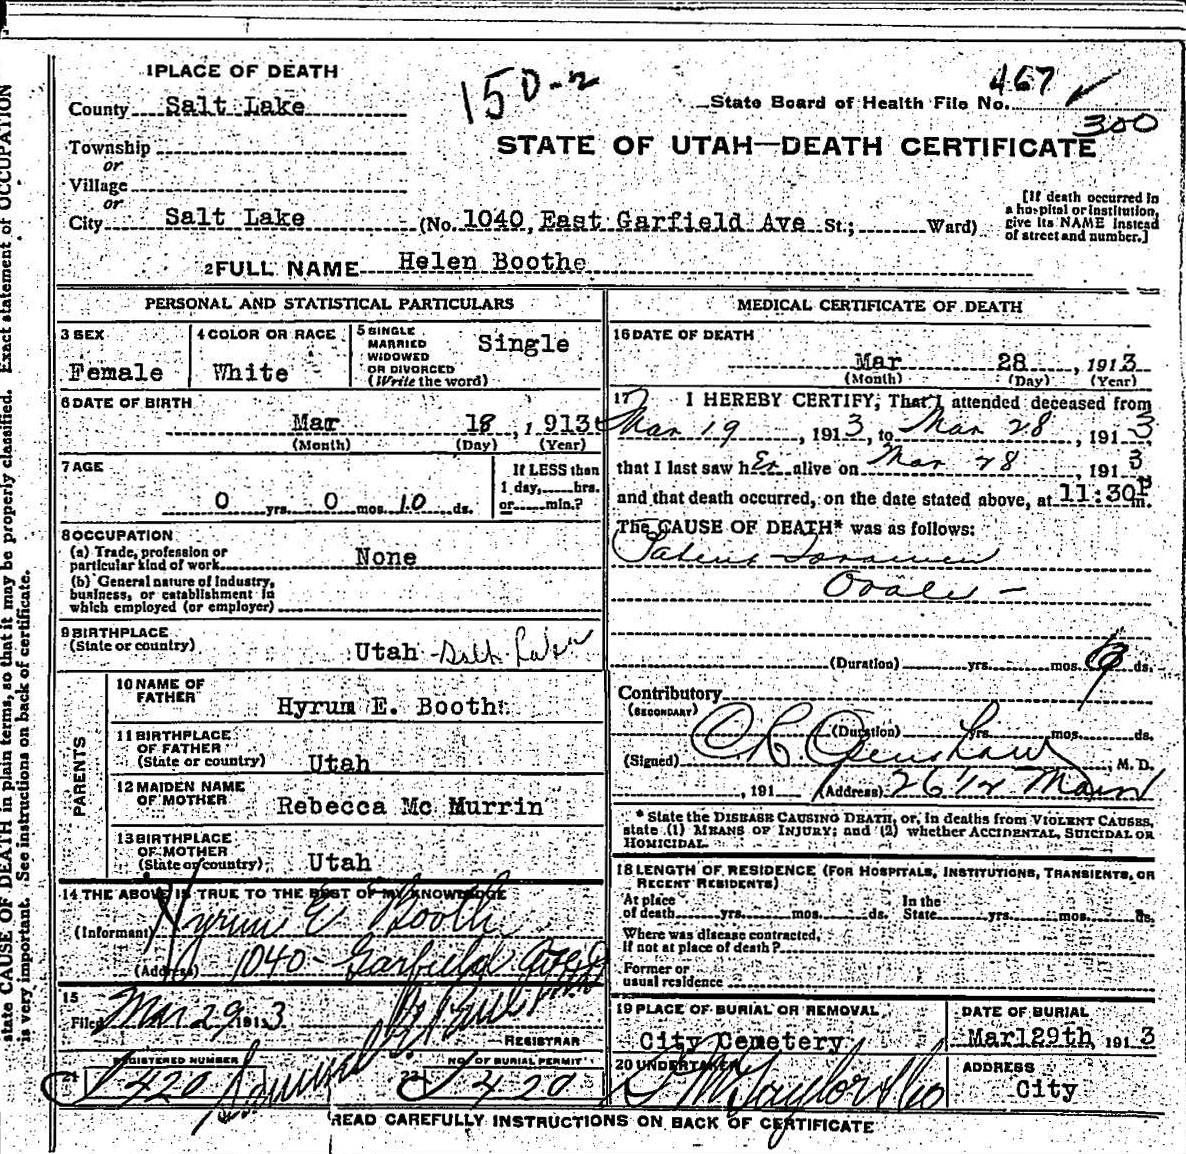 1 PLACE OF DEATH
County Salt Lake
150-2
State Board of Health File No. 467
300
STATE OF UTAH—DEATH CERTIFICATE
Township
or
Village
or
City Salt Lake (No. 1040, East Garfield Ave St.; Ward)
[If death occurred in
a hospital or institution,
give its NAME instead
of street and number.]
2 FULL NAME Helen Boothe
PERSONAL AND STATISTICAL PARTICULARS
3 SEX
Female
4 COLOR OR RACE
White
5 SINGLE
MARRIED
WIDOWED
OR DIVORCED
(Write the word)
Single
6 DATE OF BIRTH
Mar 18, 1913
(Month) (Day) (Year)
7 AGE
0 yrs. 0 mos. 10 ds.
If LESS than
1 day, hrs.
or min.?
8 OCCUPATION
(a) Trade, profession or
particular kind of work None
(b) General nature of industry,
business, or establishment in
which employed (or employer)
9 BIRTHPLACE
(State or country) Utah Salt Lake
PARENTS
10 NAME OF
FATHER Hyrum E. Booth
11 BIRTHPLACE
OF FATHER
(State or country) Utah
12 MAIDEN NAME
OF MOTHER Rebecca Mc Murrin
13 BIRTHPLACE
OF MOTHER
(State or country) Utah
14 THE ABOVE IS TRUE TO THE BEST OF MY KNOWLEDGE
(Informant) Hyrum E Booth
(Address) 1040 Garfield Ave
15
Filed Mar 29 1913
REGISTRAR
REGISTERED NUMBER
21 420
NO. OF BURIAL PERMIT
22 420
MEDICAL CERTIFICATE OF DEATH
16 DATE OF DEATH
Mar 28, 1913
(Month) (Day) (Year)
17 I HEREBY CERTIFY, That I attended deceased from
Mar 19, 1913, to Mar 28, 1913
that I last saw her alive on Mar 28, 1913
and that death occurred, on the date stated above, at 11:30P m.
The CAUSE OF DEATH* was as follows:
Patent Foramen
Ovale
(Duration) yrs. mos. 9 ds.
Contributory
(SECONDARY)
(Duration) yrs. mos. ds.
(Signed) M. D.
, 191 (Address) Main
* State the DISEASE CAUSING DEATH, or, in deaths from VIOLENT CAUSES,
state (1) MEANS OF INJURY; and (2) whether ACCIDENTAL, SUICIDAL OR
HOMICIDAL.
18 LENGTH OF RESIDENCE (FOR HOSPITALS, INSTITUTIONS, TRANSIENTS, OR
RECENT RESIDENTS)
At place
of death yrs. mos. ds. In the
State yrs. mos. ds.
Where was disease contracted,
If not at place of death?
Former or
usual residence
19 PLACE OF BURIAL OR REMOVAL
City Cemetery
DATE OF BURIAL
Mar129th, 1913
20 UNDERTAKER
ADDRESS
City
READ CAREFULLY INSTRUCTIONS ON BACK OF CERTIFICATE
state CAUSE OF DEATH in plain terms, so that it may be properly classified. Exact statement of OCCUPATION
is very important. See instructions on back of certificate.